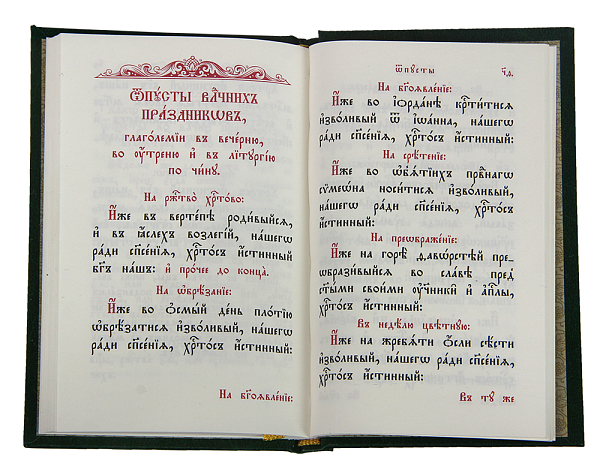 Ѿпꙋ́сты влⷣчнихъ
пра́здникѡвъ,
глаго́лемїи въ вече́рню,
во ᲂу҆́треню и҆ въ лїтꙋргі́ю
по чи́нꙋ.
На ржⷭ҇тво̀ хрⷭ҇то́во:
И҆́же въ верте́пѣ роди́выйсѧ,
и҆ въ ꙗ҆́слехъ возлегі́й, на́шегѡ
ра́ди сп҃се́нїѧ, хрⷭ҇то́съ и҆́стинный
бг҃ъ на́шъ: и҆ про́чее до конца̀.
На ѡ҆брѣ́занїе:
И҆́же во ѻ҆смы́й де́нь пло́тїю
ѡ҆брѣ́затисѧ и҆зво́ливый, на́шегѡ
ра́ди сп҃се́нїѧ, хрⷭ҇то́съ и҆́стинный:
На бг҃оѧвле́нїе:
ѿпꙋсты̀
На бг҃оѧвле́нїе:
И҆́же во і҆ѻрда́нѣ крⷭ҇ти́тисѧ
и҆зво́ливый ѿ і҆ѡа́нна, на́шегѡ
ра́ди сп҃се́нїѧ, хрⷭ҇то́съ и҆́стинный:
На срѣ́тенїе:
И҆́же во ѡ҆б̾ѧ́тїихъ првⷣнагѡ
сѷмеѡ́на носи́тисѧ и҆зво́ливый,
на́шегѡ ра́ди сп҃се́нїѧ, хрⷭ҇то́съ
и҆́стинный:
На преѡбраже́нїе:
И҆́же на горѣ̀ ѳаѵѡ́рстѣй пре-
ѡбрази́выйсѧ во сла́вѣ пред̾
ст҃ы́ми свои́ми ᲂу҆чн҃ки̑ и҆ а҆пⷭ҇лы,
хрⷭ҇то́съ и҆́стинный:
Въ недѣ́лю цвѣ́тнꙋю:
И҆́же на жребѧ́ти ѻ҆́сли сѣ́сти
и҆зво́ливый, на́шегѡ ра́ди сп҃се́нїѧ,
хрⷭ҇то́съ и҆́стинный:
Въ тꙋ́ же